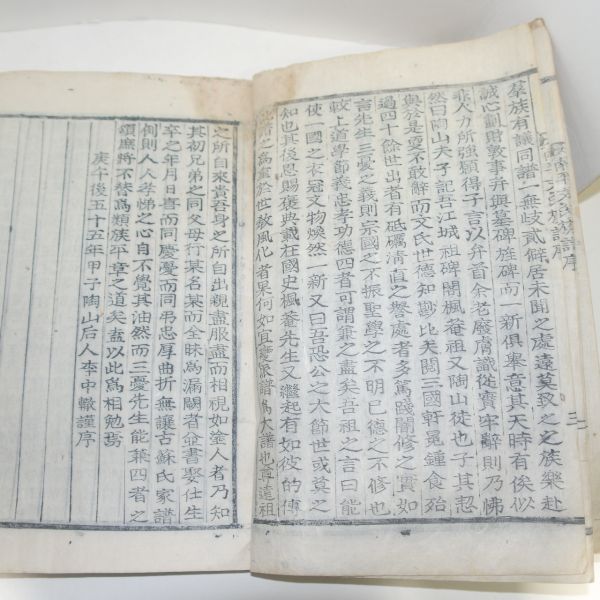 羣族有讓同譜一無歧貳僻居未聞之處遠莫致之之族樂赴
誠心劃財敦事幷與墓碑旌碑而一新俱擧意其天時有俟似
非人力所强類得子言以弁首余老廢膚識從實牢辭則乃怫
然曰陶山夫子記吾江城祖碑閣楓菴祖又陶山徒也子其恝
與於是耍不敢辭而文氏世德知尠比夫閥三國軒冕鍾食殆
過四十餘世出者有砥礪淸直之譽處者多篤踐闇修之實如
較上道學節義忠孝功德四者可謂兼之盡矣吾祖之言曰能
言先生三憂之義則宗國之不振聖學之不明已德之不修也
使一國之衣冠文物煥然一新又曰吾恐公之大節世或莫之
知也其後恩賜褒典載在國史楓菴先生又繼起有如彼的傳
譜之爲重於世敎風化者果何如宜
譜爲大譜也
遠祖
之所自來貴吾身之所自出親盡服盡而相視如塗人者乃知
其初兄弟之同父母行某名某而全昧爲漏闕者僉書娶仕生
卒之年月日喜而同慶憂而同弔忠厚曲折無讓古蘇氏家譜
例則人人孝悌之心自不覺其油然而三憂先生能兼四者之
頌庶將不替爲類族平章之道矣盍以此爲相勉焉
庚午後五十五年甲子陶山后人李中轍謹序